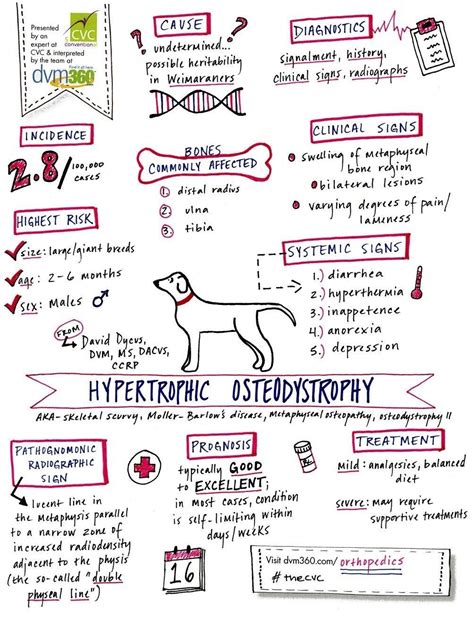 Presented
by an
expert at
CVC & interpreted
by the team at
dvm360
CVC
convention
CAUSE
undetermined...
possible heritability
in Weimaraners
DIAGNOSTICS
signalment, history,
clinical signs, radiographs
INCIDENCE
2.8/100,000
cases
BONES
COMMONLY AFFECTED
1 distal radius
2 ulna
3 tibia
CLINICAL SIGNS
• swelling of metaphyseal
bone region
• bilateral lesions
• varying degrees of pain/
lameness
HIGHEST RISK
size: large/giant breeds
age: 2-6 months
sex: Males ♂
SYSTEMIC SIGNS
1.) diarrhea
2.) hyperthermia
3.) inappetence
4.) anorexia
5.) depression
FROM
David Dycus,
DVM, MS, DACVS,
CCRP
HYPERTROPHIC OSTEODYSTROPHY
AKA- skeletal scurvy, Moller-Barlow's disease, Metaphyseal osteopathy, osteodystrophy II
PATHOGNOMONIC
RADIOGRAPHIC
SIGN
lucent line in
the metaphysis parallel
to a narrow zone of
increased radiodensity
adjacent to the physis
(the so-called "double
physeal line")
PROGNOSIS
typically GOOD
to EXCELLENT;
in most cases, condition
is self-limiting within
days/weeks
16
TREATMENT
mild: analgesics, balanced
diet
severe: may require
supportive treatments
Visit dvm360.com/orthopedics
#thecvc